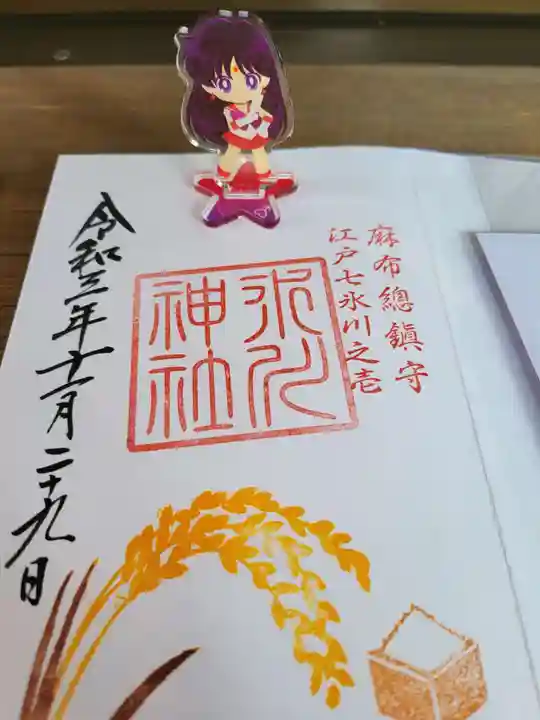 麻布總鎮守
江戸七氷川之壱
氷川
神社
令和三年十一月二十九日